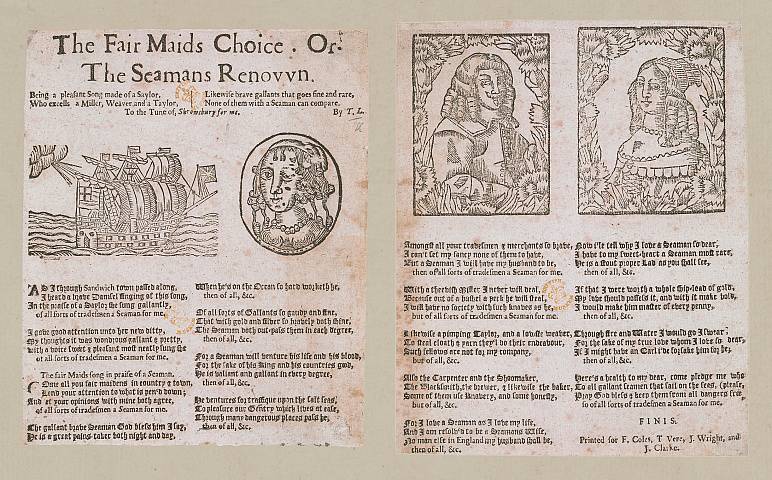 The Fair Maids Choice. Or.
The Seamans Renovvn.
Being a pleasant Song made of a Saylor,
Who excells a Miller, Weaver, and a Taylor,
Likewise brave gallants that goes fine and rare,
None of them with a Seaman can compare.
To the Tune of, Shrewsbury for me. By T. L.
AS I through Sandwich town passed along,
I heard a brave Damsel singing of this song,
In the praise of a Saylor she sung gallantly,
of all sorts of tradesmen a Seaman for me.
I gave good attention unto her new ditty,
My thoughts it was wondrous gallant & pretty,
with a voice sweet & pleasant most neatly sung she
of all sorts of tradesmen a Seaman for me.
The fair Maids song in praise of a Seaman.
COme all you fair maidens in country & town,
Lend your attention to what is pen'd down;
And let your opinions with mine both agree,
of all sorts of tradesmen a Seaman for me.
The gallant brave Seaman God bless him I say,
He is a great pains-taker both night and day,
When he's on the Ocean so hard worketh he,
then of all, &c.
Of all sorts of Gallants so gaudy and fine,
That with gold and silver so bravely doth shine,
The Seaman doth out-pass them in each degree,
then of all, &c.
For a Seaman will venture his life and his blood,
For the sake of his King and his countries good,
He is valiant and gallant in every degree,
then of all, &c.
He ventures for traffique upon the salt seas,
To pleasure our Gentry which lives at ease,
Through many dangerous places pass he;
then of all, &c.
Amongst all your tradesmen & merchants so brave,
I can't set my fancy none of them to have,
But a Seaman I will have my husband to be,
then of all sorts of tradesmen a Seaman for me.
With a thievish Miller I never will deal,
Because out of a bushel a peck he will steal,
I will have no society with such knaves as he,
but of all sorts of tradesmen a Seaman for me.
Likewise a pimping Taylor, and a lowsie weaver,
To steal cloath & yarn they'l do their endeavour,
Such fellows are not for my company,
but of all, &c.
Also the Carpenter and the Shoomaker,
The Blacksmith, the brewer, & likewise the baker,
Some of them use knavery, and some honesty,
but of all, &c.
For I love a Seaman as I love my life,
And I am resolv'd to be a Seamans Wife,
No man else in England my husband shall be,
then of all, &c.
Now i'le tell why I love a Seaman so dear,
I have to my sweet-heart a Seaman most rare,
He is a stout proper Lad as you shall see,
then of all, &c.
If that I were worth a whole ship-lead of gold,
My love should possess it, and with it make bold,
I would make him master of every penny,
then of all, &c.
Through fire and Water I would go I swear,
For the sake of my true love whom I love so dear,
If I might have an Earl i'de forsake him for he;
then of all, &c.
Here's a health to my dear, come pledge me who
To all gallant seamen that sail on the seas, (please,
Pray God bless & keep them from all dangers free
so of all sorts of tradesmen a Seaman for me.
FINIS.
Printed for F. Coles, T Vere, J. Wright, and
J. Clarke.